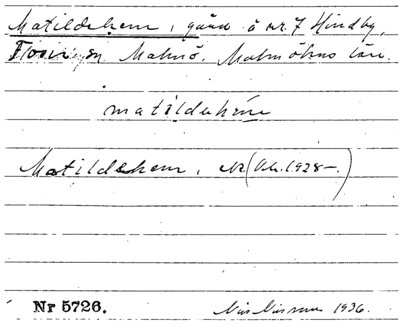 Matildehem, gård å nr. 7 Hindby,
Fosie sn Malmö. Malmöhus län.
matildehém
Matildehem, (1928–.)
Nr 5726. 1936.